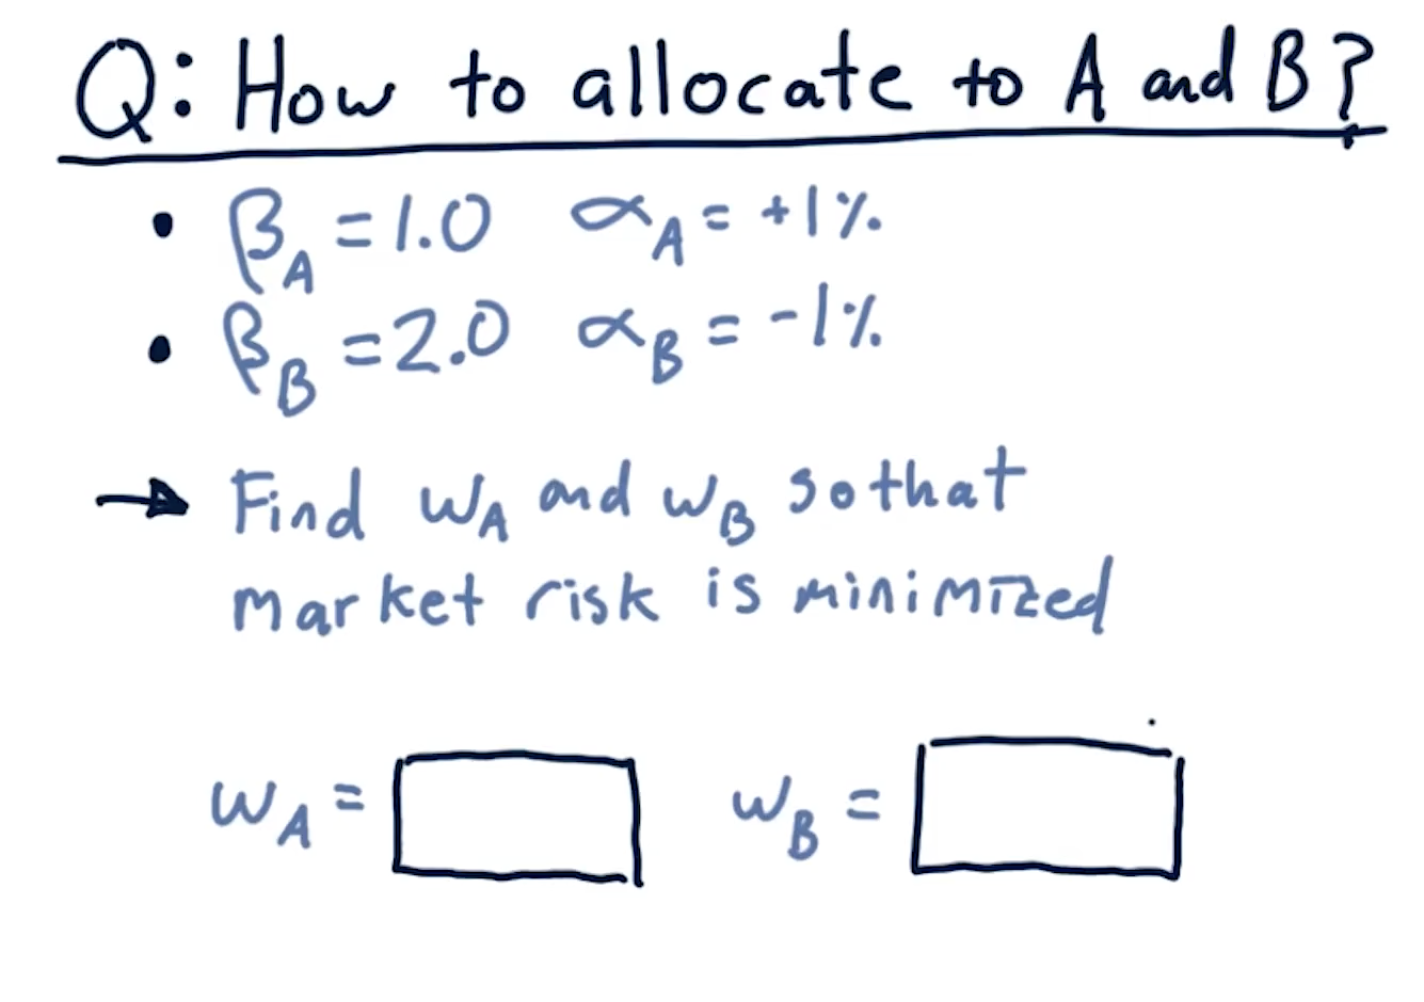 Q: How to allocate to A and B?
• β_A = 1.0 α_A = +1%
• β_B = 2.0 α_B = -1%
→ Find w_A and w_B so that
market risk is minimized
w_A = w_B =